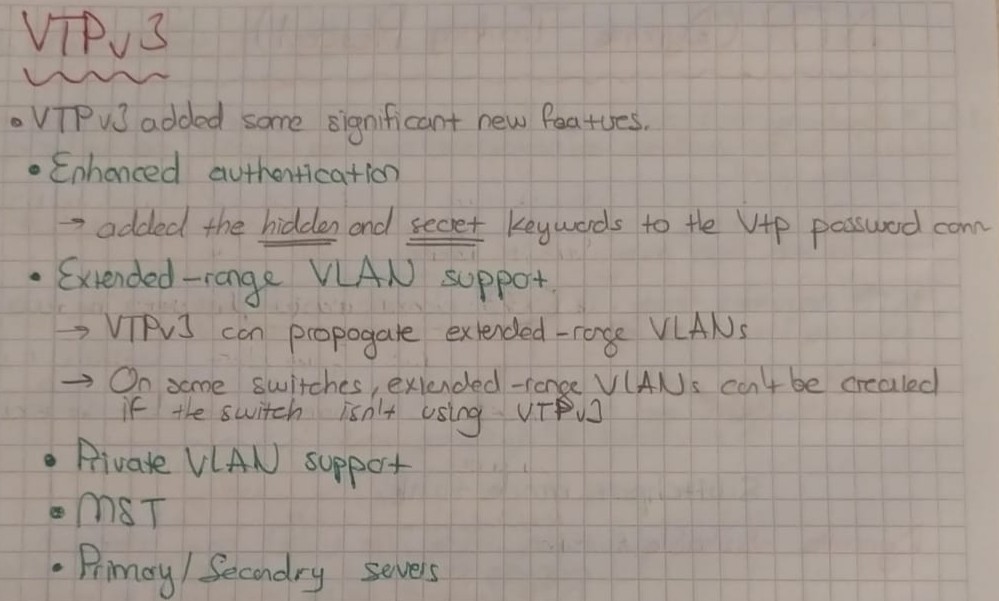 VTPv3
• VTPv3 added some significant new featues.
• Enhanced authentication
→ added the hidden and secret keywords to the vtp password comm
• Extended-range VLAN support.
→ VTPv3 can propogate extended-range VLANs
→ On some switches, extended-range VLANs can't be created
if the switch isn't using VTPv3
• Private VLAN support
• MST
• Primary/Secondry servers